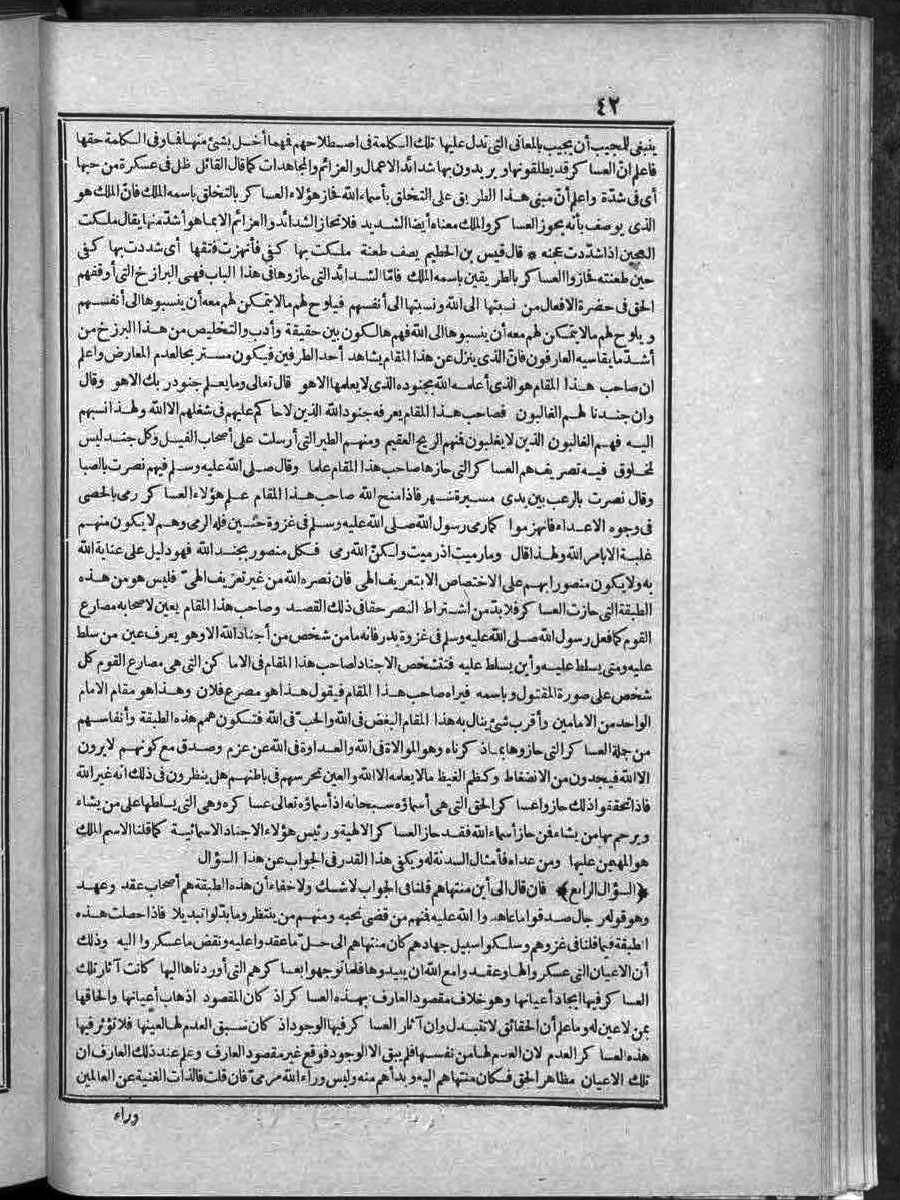 ٤٢
ينبغي للمجيب أن يجيب بالمعاني التي تدل عليها تلك الكلمة في اصطلاحهم فهما أخل بشئ منها فما وفي الكلمة حقها
فاعلم ان العساكر قد يطلقونها ويريدون بها شدائد الاعمال والعزائم والمجاهدات كما قال القائل ظل في عسكرة من حبها
أي في شدّة واعلم أنّ مبنى هذا الطريق على التخلق بأسماء الله فاز هؤلاء العساكر بالتخلق باسمه الملك فانّ الملك هو
الذي يوصف بأنه يحوز العساكر والملك معناه أيضا الشديد فلا تحاز الشدائد والعزائم الا بما هو أشدّ منها يقال ملكت
العجين اذا شدّدت عجنه * قال قيس بن الخطيم يصف طعنة ملكت بها كفي فأنهرت فتقها أي شددت بها كفي
حين طعنته فحازوا العساكر بالطريقين باسمه الملك فأمّا الشدائد التي حازوها في هذا الباب فهي البرازخ التي أوقفهم
الحق في حضرة الافعال من نسبتها الى الله ونسبتها الى أنفسهم فيلوح لهم ما لا يتمكن لهم معه أن ينسبوها الى أنفسهم
ويلوح لهم ما لا يتمكن لهم معه أن ينسبوها الى الله فهم هالكون بين حقيقة وأدب والتخليص من هذا البرزخ من
أشدّ ما يقاسيه العارفون فانّ الذي ينزل عن هذا المقام يشاهد أحد الطرفين فيكون مستريحا لعدم المعارض واعلم
ان صاحب هذا المقام هو الذي أعلمه الله بجنوده الذي لا يعلمها الا هو قال تعالى وما يعلم جنود ربك الا هو وقال
وان جندنا لهم الغالبون فصاحب هذا المقام يعرفه جنود الله الذين لا حاكم عليهم في شغلهم الا الله ولهذا نسبهم
اليه فهم الغالبون الذين لا يغلبون فنهم الريح العقيم ومنهم الطير التي أرسلت على أصحاب الفيل وكل جند ليس
لمخلوق فيه تصريف هم العساكر التي حازها صاحب هذا المقام علما وقال صلى الله عليه وسلم فيهم نصرت بالصبا
وقال نصرت بالرعب بين يدى مسيرة شهر فاذا منح الله صاحب هذا المقام علم هؤلاء العساكر رمى بالحصى
في وجوه الاعداء فانهزموا كما رمى رسول الله صلى الله عليه وسلم في غزوة حنين فله الرمي وهم لا يكون منهم
غلبة الا بامر الله ولهذا قال وما رميت اذ رميت ولكنّ الله رمى فكل منصور بجند الله فهو دليل على عناية الله
به ولا يكون منصورا بهم على الاختصاص الا بتعريف الهي فان نصره الله من غير تعريف الهيّ فليس هو من هذه
الطبقة التي حازت العساكر فلا بدّ من اشتراط النصر حقا في ذلك القصد وصاحب هذا المقام يعين لاصحابه مصارع
القوم كما فعل رسول الله صلى الله عليه وسلم في غزوة بدر فانه ما من شخص من أجناد الله الا وهو يعرف عين من سلط
عليه ومتى يسلط عليه وأين يسلط عليه فتتشخص الاجناد لصاحب هذا المقام في الاماكن التي هي مصارع القوم كل
شخص على صورة المقتول وباسمه فيراه صاحب هذا المقام فيقول هذا هو مصرع فلان وهذا هو مقام الامام
الواحد من الامامين وأقرب شئ ينال به هذا المقام البغض في الله والحبّ في الله فتكون همم هذه الطبقة وأنفاسهم
من جلة العساكر التي حازوها بما ذكرناه وهو الموالاة في الله والعداوة في الله عن عزم وصدق مع كونهم لا يرون
الا الله فيجدون من الانضغاط وكظم الغيظ ما لا يعلمه الا الله والعين تحرسهم في باطنهم هل ينظرون في ذلك انه غير الله
فاذا تحققوا ذلك حازوا عساكر الحق التي هي أسماؤه سبحانه اذ أسماؤه تعالى عساكره وهي التي يسلطها على من يشاء
ويرحم بها من يشاء فن حاز أسماء الله فقد حاز العساكر الالهية ورئيس هؤلاء الاجناد الاسمائية كما قلنا الاسم الملك
هو المهيمن عليها ومن عداه فأمثال السدنة له ويكفي هذا القدر في الجواب عن هذا السؤال
﴿السؤال الرابع﴾ فان قال الى أين منتهاهم قلنا في الجواب لا شك ولا خفاء أن هذه الطبقة هم أصحاب عقد وعهد
وهو قوله رجال صدقوا ما عاهدوا الله عليه فنهم من قضى نحبه ومنهم من ينتظر وما بدّلوا تبديلا فاذا حصلت هذه
الطبقة فيما قلنا في غزوهم وسلكوا سبيل جهادهم كان منتهاهم الى حلّ ما عقدوا عليه ونقض ما عسكروا اليه وذلك
أن الاعيان التي عسكروا الها وعقدوا مع الله ان يبيدوها فلما توجهوا بعساكرهم التي أوردناها اليها كانت آثار تلك
العساكر فيها ايجاد أعيانها وهو خلاف مقصود العارف بهذه العساكر اذ كان المقصود اذهاب أعيانها والحاقها
بمن لا عين له وما علم أن الحقائق لا تتبدل وان آثار العساكر فيها الوجود اذ كان سبق العدم لها لعينها فلا تؤثر فيها
هذه العساكر العدم لان العدم لها من نفسها فلم يبق الا الوجود فوقع غير مقصود العارف وعلم عند ذلك العارف ان
تلك الاعيان مظاهر الحق فكان منتهاهم اليه وبدأهم منه وليس وراء الله مرمى فان قلت فالذات الغنية عن العالمين
وراء